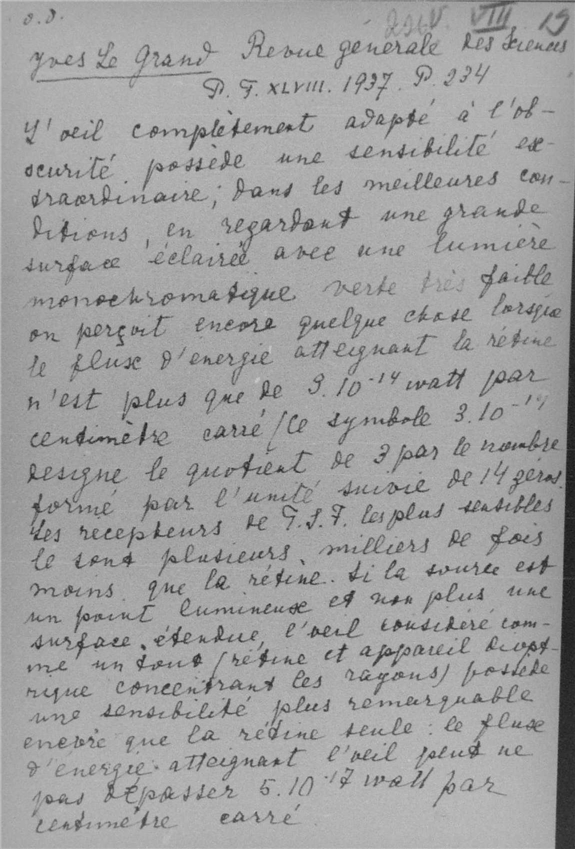 V. VIII. 19
Yves Le Grand Revue générale des Sciences
P. T. XLVIII. 1937. P. 234
L'oeil complètement adapté à l'ob-
scurité possède une sensibilité ex-
traordinaire; dans les meilleures con-
ditions, en regardant une grande
surface éclairée avec une lumière
monochromatique verte très faible
on perçoit encore quelque chose lorsque
le flux d'énergie atteignant la rétine
n'est plus que de 3.10⁻¹⁴ watt par
centimètre carré (Ce symbole 3.10⁻¹⁴
designe le quotient de 3 par le nombre
formé par l'unité suivie de 14 zeros.
Les recepteurs de T.S.F. les plus sensibles
le sont plusieurs milliers de fois
moins que la rétine. Si la source est
un point lumineux et non plus une
surface étendue, l'oeil considéré com-
me un tout (rétine et appareil diopt-
rique concentrant les rayons) possède
une sensibilité plus remarquable
encore que la rétine seule: le flux
d'énergie atteignant l'oeil peut ne
pas dépasser 5.10⁻¹⁷ watt par
centimètre carré.